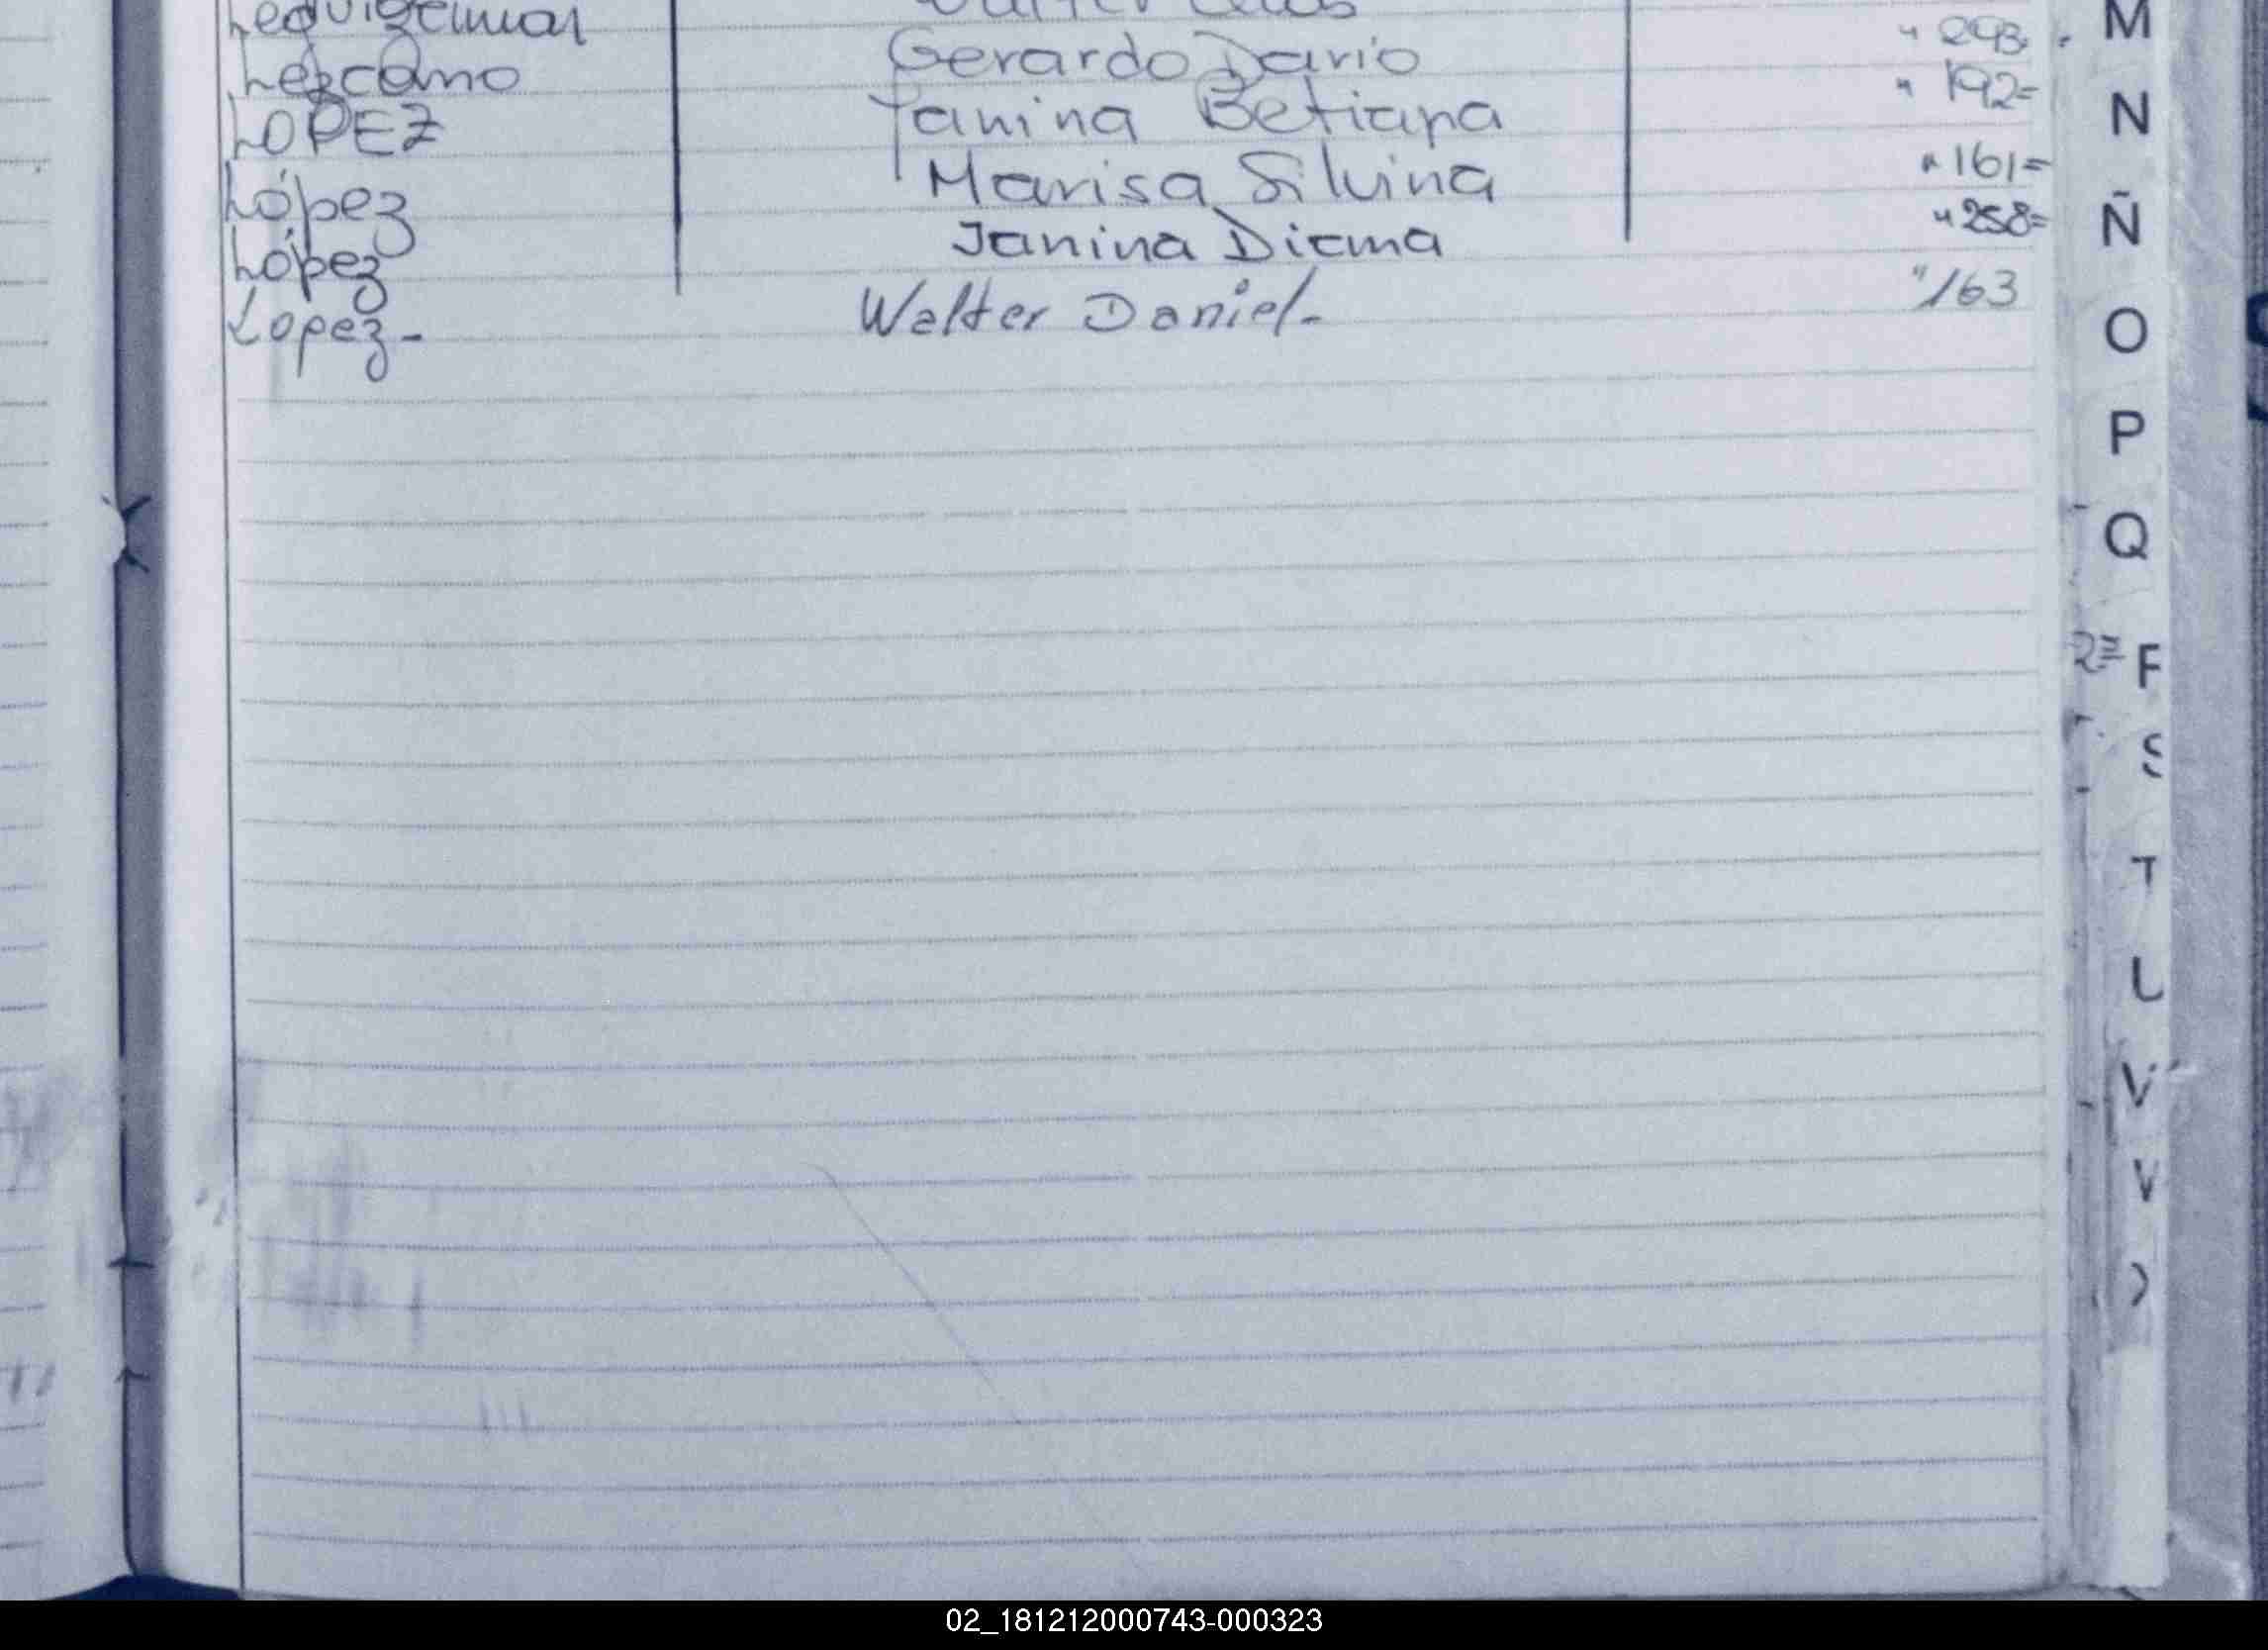 Lezcano Gerardo Dario " 293
LOPEZ Yanina Betiana " 192=
López Marisa Silvina " 161=
López Janina Diana " 258=
Lopez- Walter Daniel- " 163
M
N
Ñ
O
P
Q
S
T
V
V
02_181212000743-000323